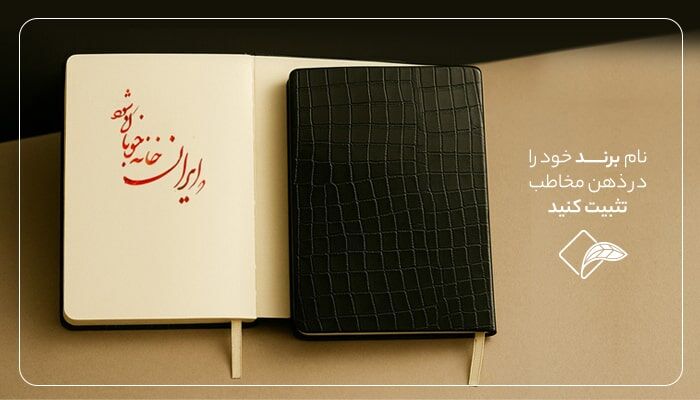 ایران
خانه
خوبان
شود
نام برنــد خود را
در ذهن مخاطب
تثبیت کنید